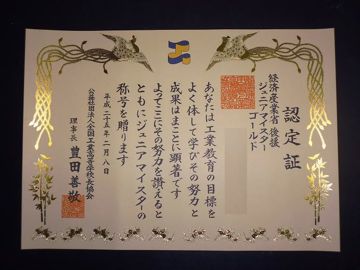 認定証
経済産業省後援
ジュニアマイスター
ゴールド
あなたは工業教育の目標を
よく体して学びその努力と
成果はまことに顕著です
よってここにその努力を讃えると
ともにジュニアマイスターの
称号を贈ります
平成二十五年二月八日
公益社団法人全国工業高等学校長協会
理事長 豊田善敬